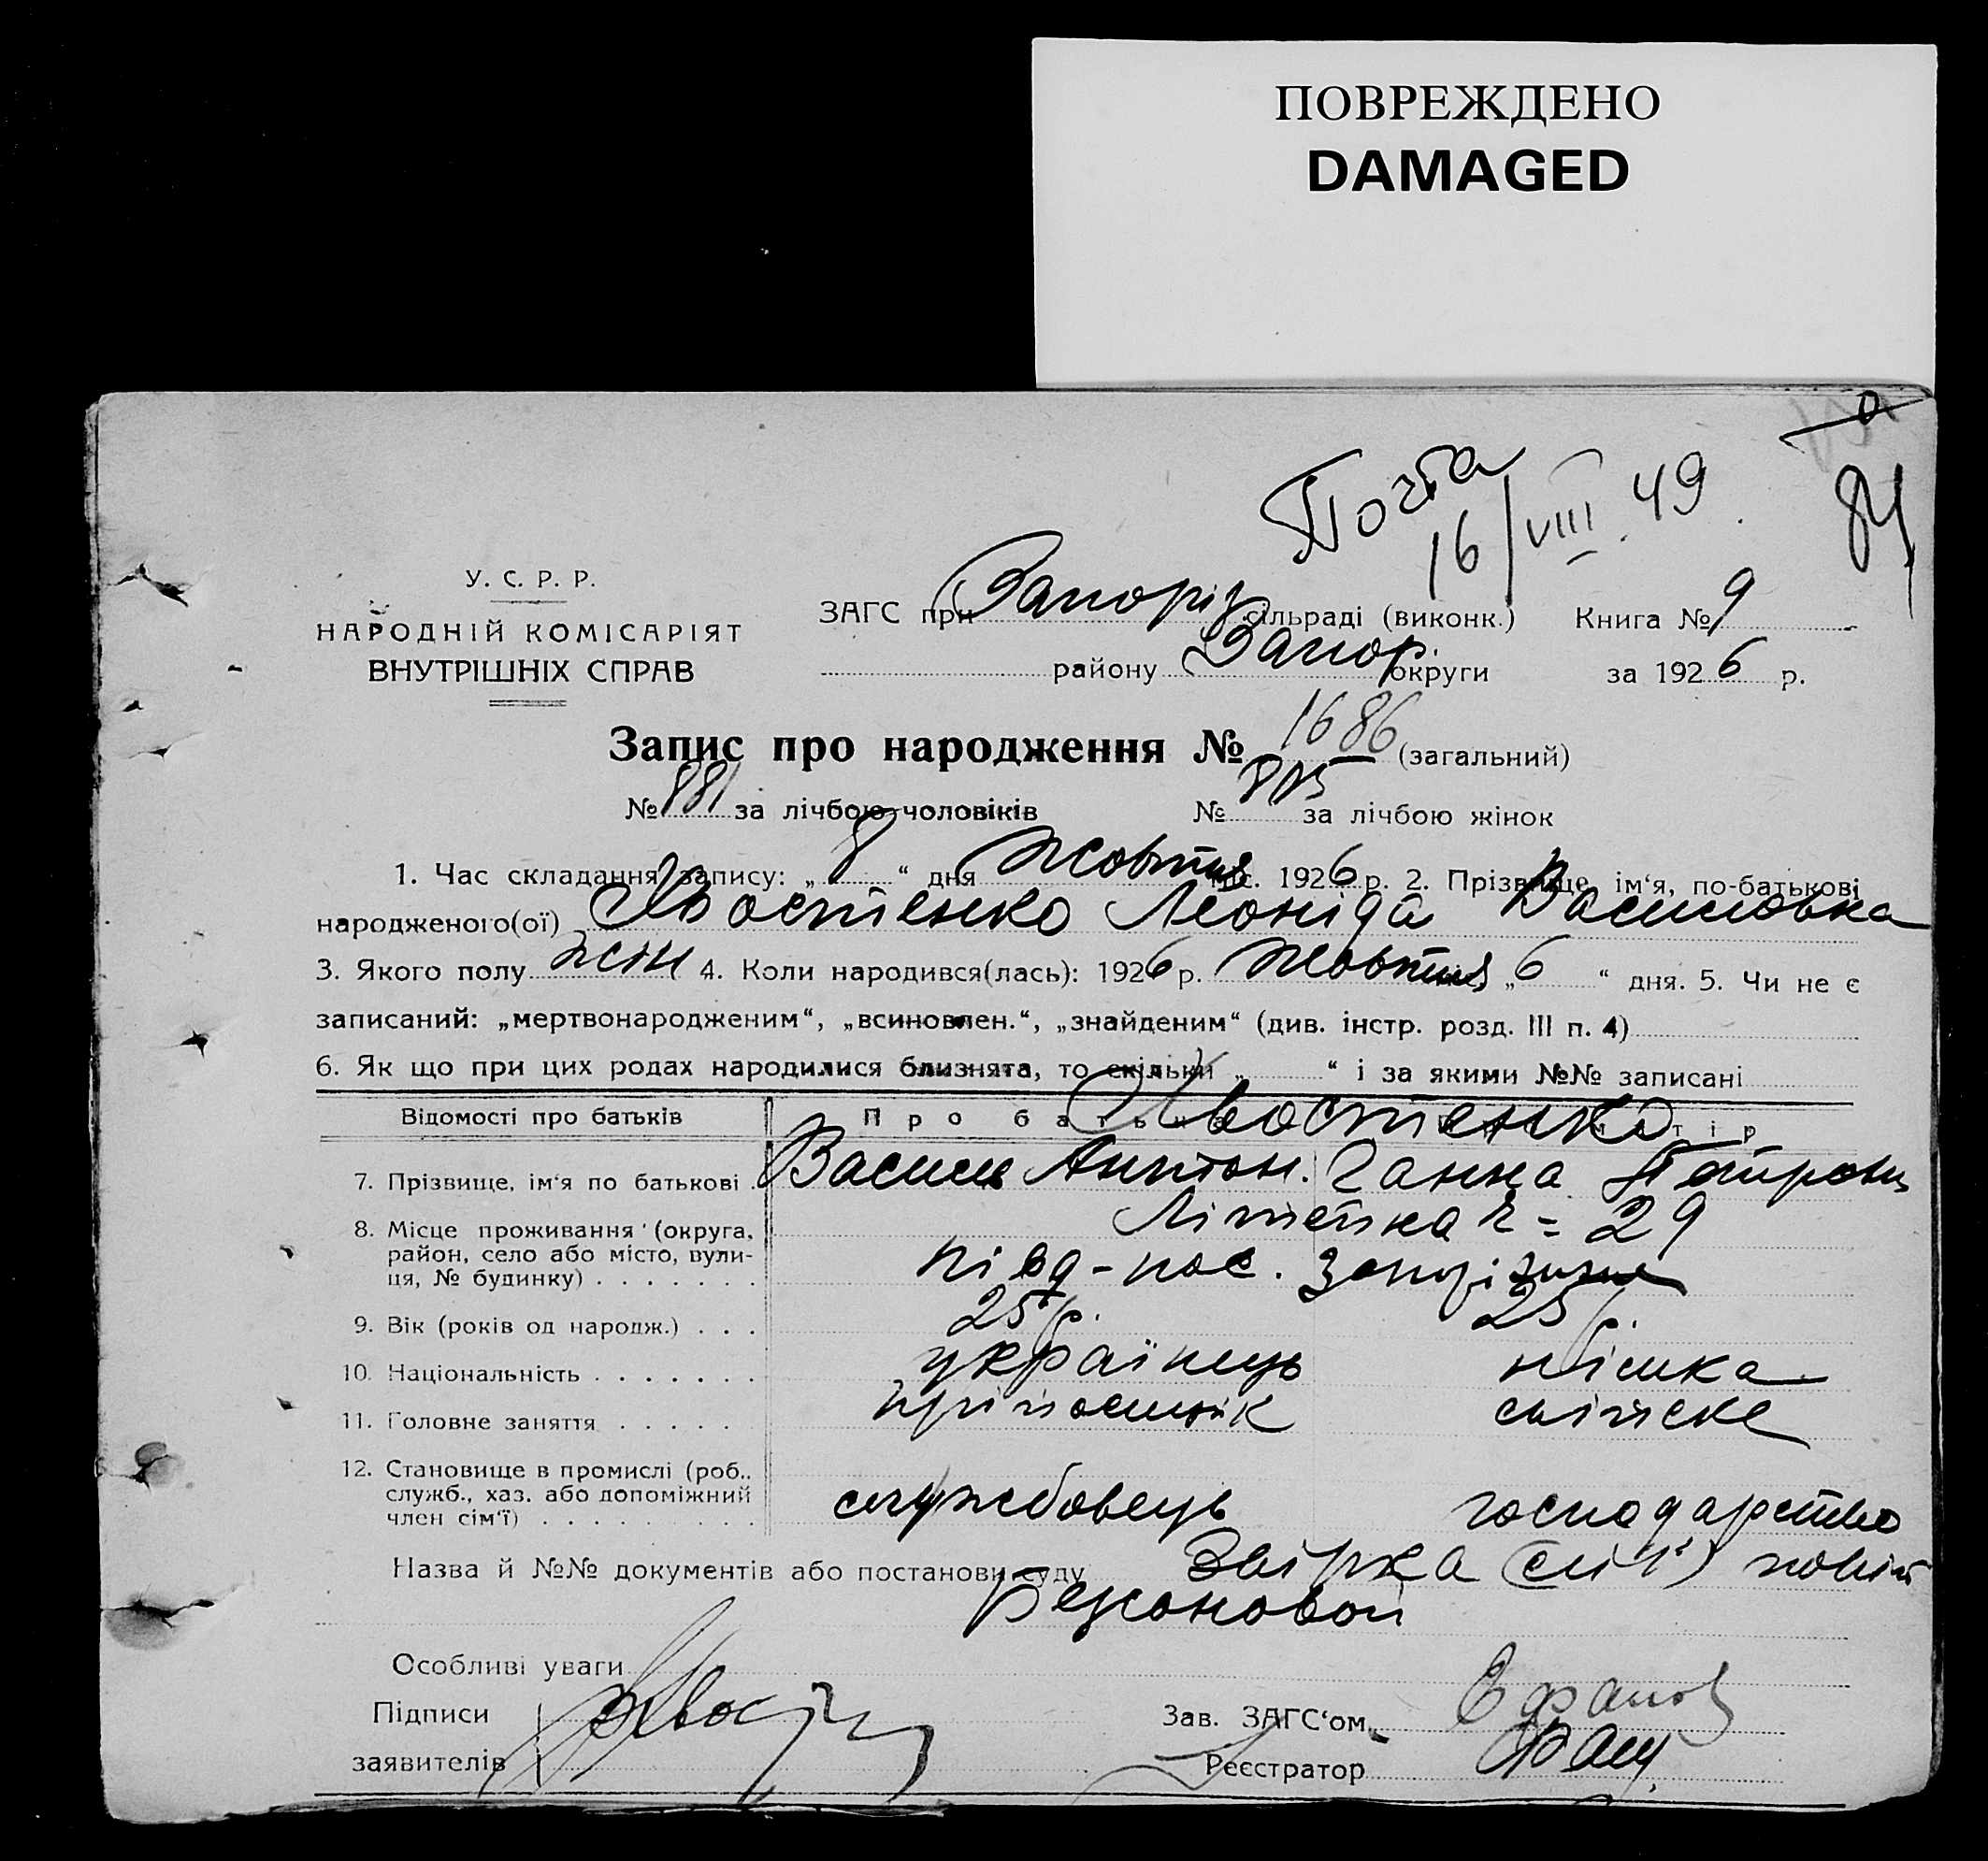 ПОВРЕЖДЕНО
DAMAGED
Почта
16/VIII 49
84
У. С. Р. Р.
НАРОДНІЙ КОМІСАРІЯТ
ВНУТРІШНІХ СПРАВ
ЗАГС при Запоріз сільраді (виконк.) Книга № 9
району Запор. округи за 1926 р.
Запис про народження № 1686 (загальний)
№ 881 за лічбою чоловіків № 805 за лічбою жінок
1. Час складання запису: „ 8 “ дня Жовтня міс. 1926 р. 2. Прізвище, ім‘я, по-батькові
народженого(ої) Хвостенко Леоніда Василівна
3. Якого полу жін 4. Коли народився(лась): 1926 р. Жовтня „ 6 “ дня. 5. Чи не є
записаний: „мертвонародженим“, „всиновлен.“, „знайденим“ (див. інстр. розд. III п. 4)
6. Як що при цих родах народилися близнята, то скільки „ “ і за якими №№ записані
Відомості про батьків Про батька матір
Хвостенко
7. Прізвище, ім‘я по батькові Василь Антон. Ганна Петровн
8. Місце проживання (округа, район, село або місто, вулиця, № будинку) 29
півд-пос. Запоріжжя
9. Вік (років од народж.) 25 р. 25 р.
10. Національність українець німка
11. Головне заняття хатнє
12. Становище в промислі (роб., служб., хаз. або допоміжний член сім‘ї) службовець господарство
Назва й №№ документів або постанови суду
Особливі уваги
Підписи
заявителів
Зав. ЗАГС‘ом
Реєстратор